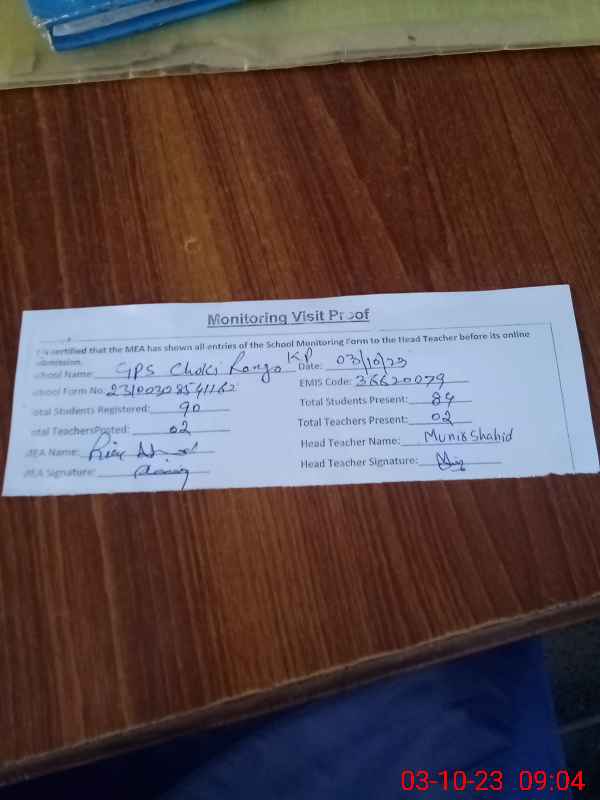 Monitoring Visit Proof
certified that the MEA has shown all entries of the School Monitoring Form to the Head Teacher before its online
School Name: GPS Choki Rango KP Date: 03/10/23
School Form No: EMIS Code: 36620079
Total Students Registered: 90 Total Students Present: 84
Total TeachersPosted: 02 Total Teachers Present: 02
MEA Name: Head Teacher Name: Munir Shahid
MEA Signature: Head Teacher Signature:
03-10-23 09:04